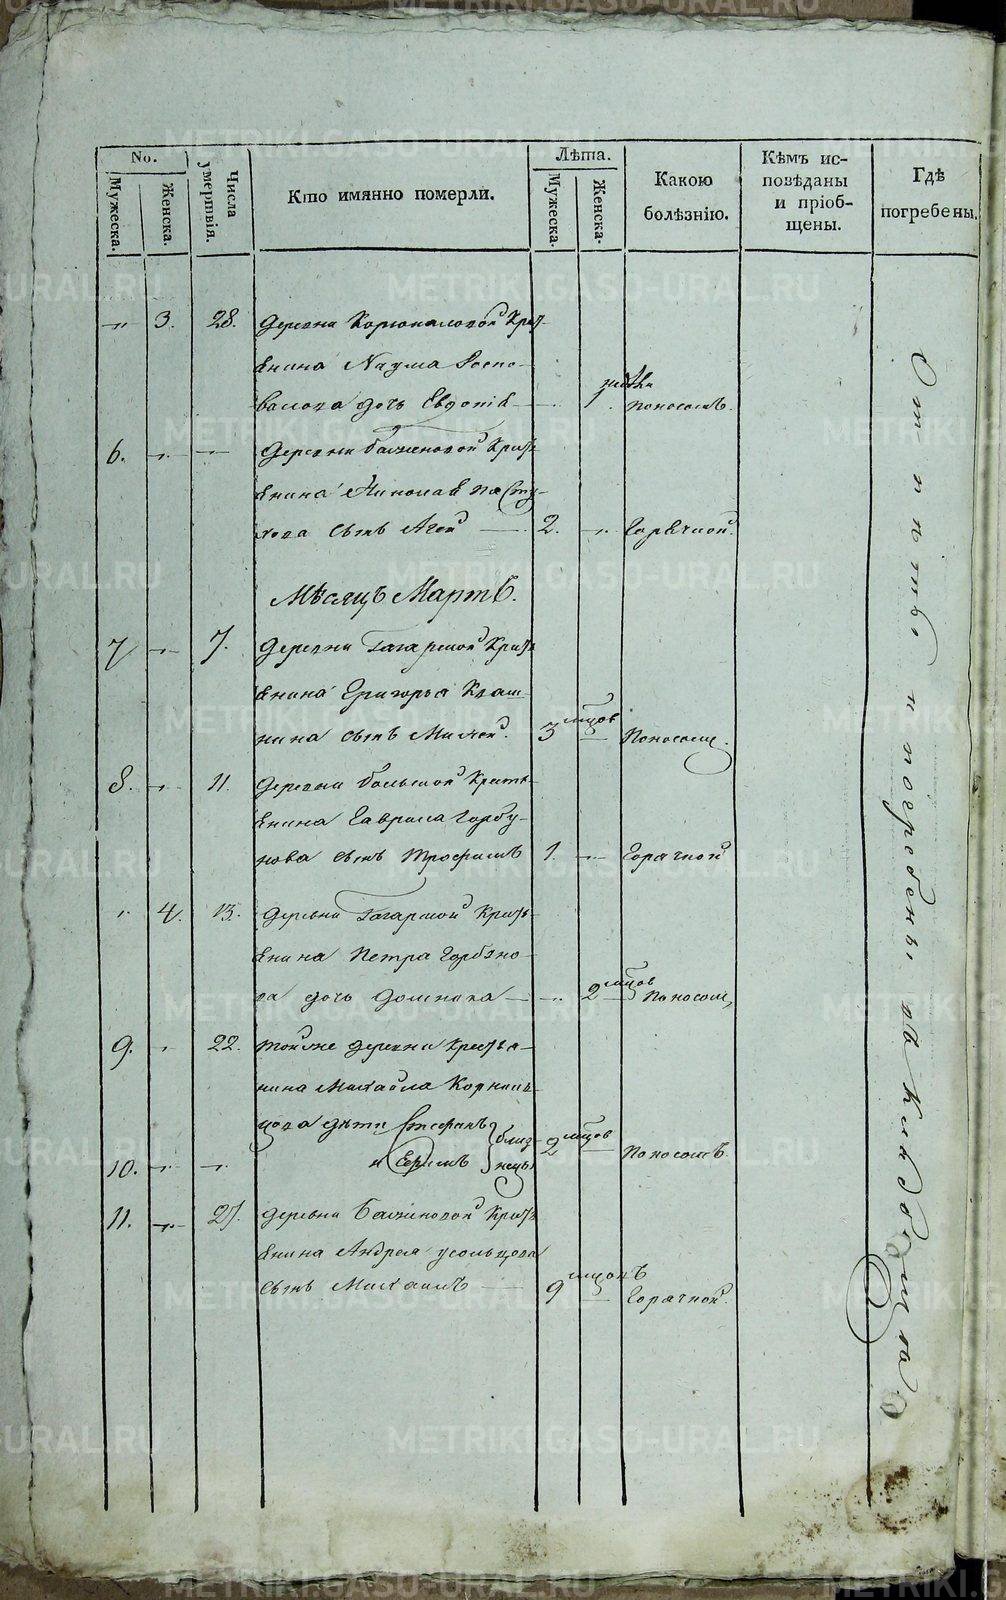 No.
Мужеска.
Женска.
Числа умертвія.
Кто имянно померли.
Лѣта.
Мужеска.
Женска.
Какою болѣзнію.
Кѣмъ ис-
повѣданы
и пріоб-
щены.
Гдѣ
погребены.
3. 28. Деревни
Наума
дочь Евдокія 1 поносомъ.
6. Деревни Баженовой Кресть
янина Николая Пасту
хова сынъ 2. горячкой.
Мѣсяцъ Мартъ.
7 7. Деревни Гагарской Кресть
янина Григорья Кваш
нина сынъ 3 мцов Поносомъ.
8. 11. Деревни Большой Кресть
янина Гаврила Горбу
нова сынъ Трофимъ 1. Горячкой
4. 13. деревни Гагарской Кресть
янина Петра Горбуно
ва дочь Домника 2 мцов Поносом
9. 22. тойже деревни крестья
нина Михайла Корниль
цова дѣти Стефанъ близ 2 мцов Поносомъ.
10. и Ефимъ нецы
11. 27. деревни Баженовой Кресть
янина Андрея Усольцова
сынъ Михаилъ 9 мцовъ Горячкой.
Отпѣты и погребены на кладбища
METRIKI.GASO-URAL.RU